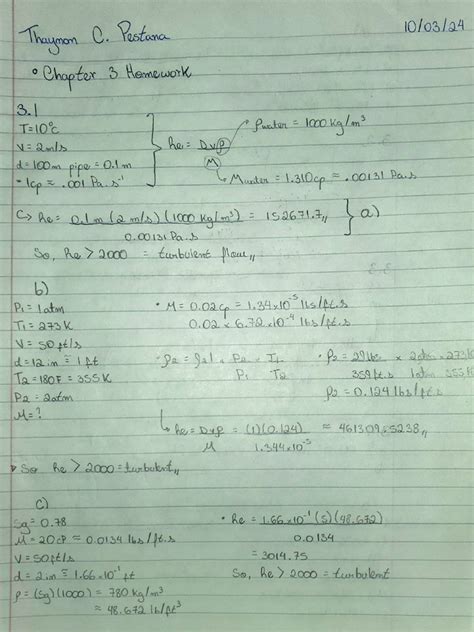 Thaynan C. Pestana 10/03/24
• Chapter 3 Homework
3.1
T=10°C
V=2m/s
d=100m pipe=0.1m
*1cp=.001 Pa.s⁻¹
Re= Dvρ
M
ρwater=1000 Kg/m³
Mwater=1.310cp=.00131 Pa.s
Re= 0.1m (2 m/s)(1000 Kg/m³) = 152671.7,, } a)
0.00131 Pa.s
So, Re > 2000 = turbulent flow,,
b)
P₁= 1atm
T₁=273K
V=50ft/s
d=12in ≅ 1ft
T₂=180F=355K
P₂=2atm
M=?
• M=0.02cp=1.34x10⁻⁵ lbs/ft.s
0.02x6.72x10⁻⁴ lbs/ft.s
ρ₂=ρ₁ x P₂ x T₁
P₁ T₂
• ρ₂=29lbs x 2atm x 273K
359ft.s 1atm 355K
ρ₂=0.124 lbs/ft.s
Re=Dvρ = (1)(0.124) ≈ 461309.5238,,
M 1.344x10⁻⁵
So Re > 2000=turbulent,,
c)
sg=0.78
M=20cP≈0.0134 lbs/ft.s
V=50ft/s
d=2in ≅ 1.66x10⁻¹ ft
ρ=(sg)(1000)=780 kg/m³
≈48.672 lb/ft³
• Re=1.66x10⁻¹(5)(48.672)
0.0134
=3014.75
So, Re > 2000=turbulent